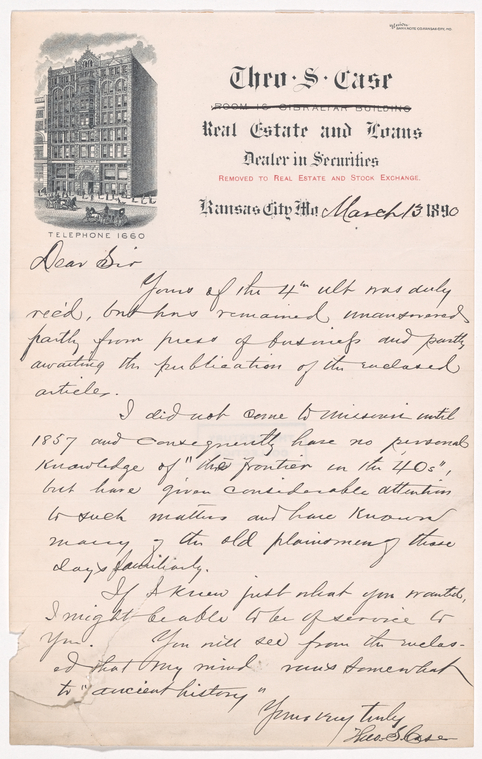 Theo. S. Case
ROOM 16 GIBRALTAR BUILDING
Real Estate and Loans
Dealer in Securities
REMOVED TO REAL ESTATE AND STOCK EXCHANGE.
Kansas City, Mo. March 13 1890
TELEPHONE 1660
Dear Sir
Yours of the 4th ult was duly
rec'd, but has remained unanswered
partly from press of business and partly
awaiting the publication of the enclosed
articles.
I did not come to Missouri until
1857 and consequently have no personal
knowledge of "the frontier in the 40s",
but have given considerable attention
to such matters and have known
many of the old plainsmen of those
days familiarly.
If I knew just what you wanted,
I might be able to be of service to
You. You will see from the enclos-
ed that my mind runs somewhat
to "ancient history"
Yours very truly
Theo. S. Case